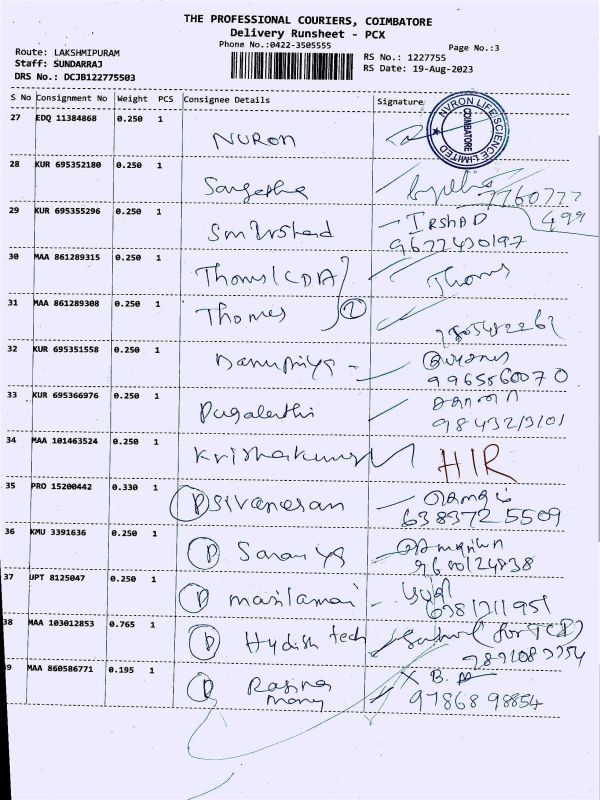 THE PROFESSIONAL COURIERS, COIMBATORE
Delivery Runsheet - PCX
Phone No.:0422-3505555
Page No.:3
Route: LAKSHMIPURAM
Staff: SUNDARRAJ
DRS No.: DCJB122775503
RS No.: 1227755
RS Date: 19-Aug-2023
S No Consignment No Weight PCS Consignee Details Signature
27 EDQ 11384868 0.250 1 NURON
NVRON LIFE SCIENCE LIMITED COIMBATORE
28 KUR 695352180 0.250 1 Sangeetha
499
29 KUR 695355296 0.250 1 IRSHAD
9677430197
30 MAA 861289315 0.250 1 Thoms (CDA) Thoms
31 MAA 861289308 0.250 1 Thomes 2
32 KUR 695351558 0.250 1 Banupriya
9965560070
33 KUR 695366976 0.250 1 Pugalenthi
34 MAA 101463524 0.250 1 Krishakumar HIR
35 PRO 15200442 0.330 1 P Sivanesan
6383725509
36 KMU 3391636 0.250 1 P Saranya
9600124838
37 UPT 8125047 0.250 1 P masilamai
6381211951
38 MAA 103012853 0.765 1 P Hydish tech
39 MAA 860586771 0.195 1 P Rasina many X B.
97868 98854